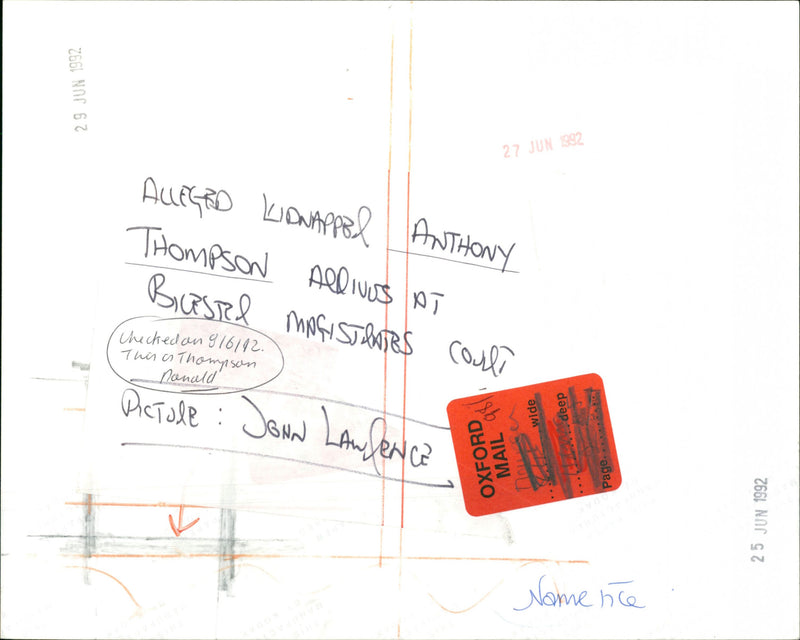 29 JUN 1992
27 JUN 1992
ALLEGED KIDNAPPER ANTHONY
THOMPSON ARRIVES AT
BICESTER MAGISTRATES COURT
Checked on 9/6/92.
This is Thompson
Donald
PICTURE : JOHN LAWRENCE
OXFORD
MAIL
wide
deep
Page
25 JUN 1992
Name